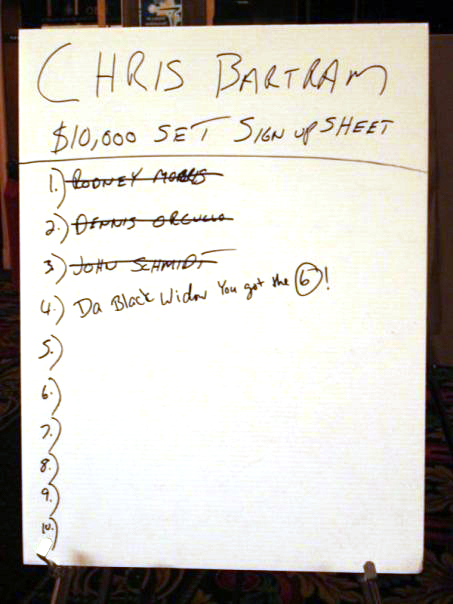 CHRIS BARTRAM
$10,000 SET SIGN UP SHEET
1.) RODNEY MORRIS
2.) DENNIS ORCULLO
3.) JOHN SCHMIDT
4.) Da Black Widow You got the 6!
5.)
6.)
7.)
8.)
9.)
10.)